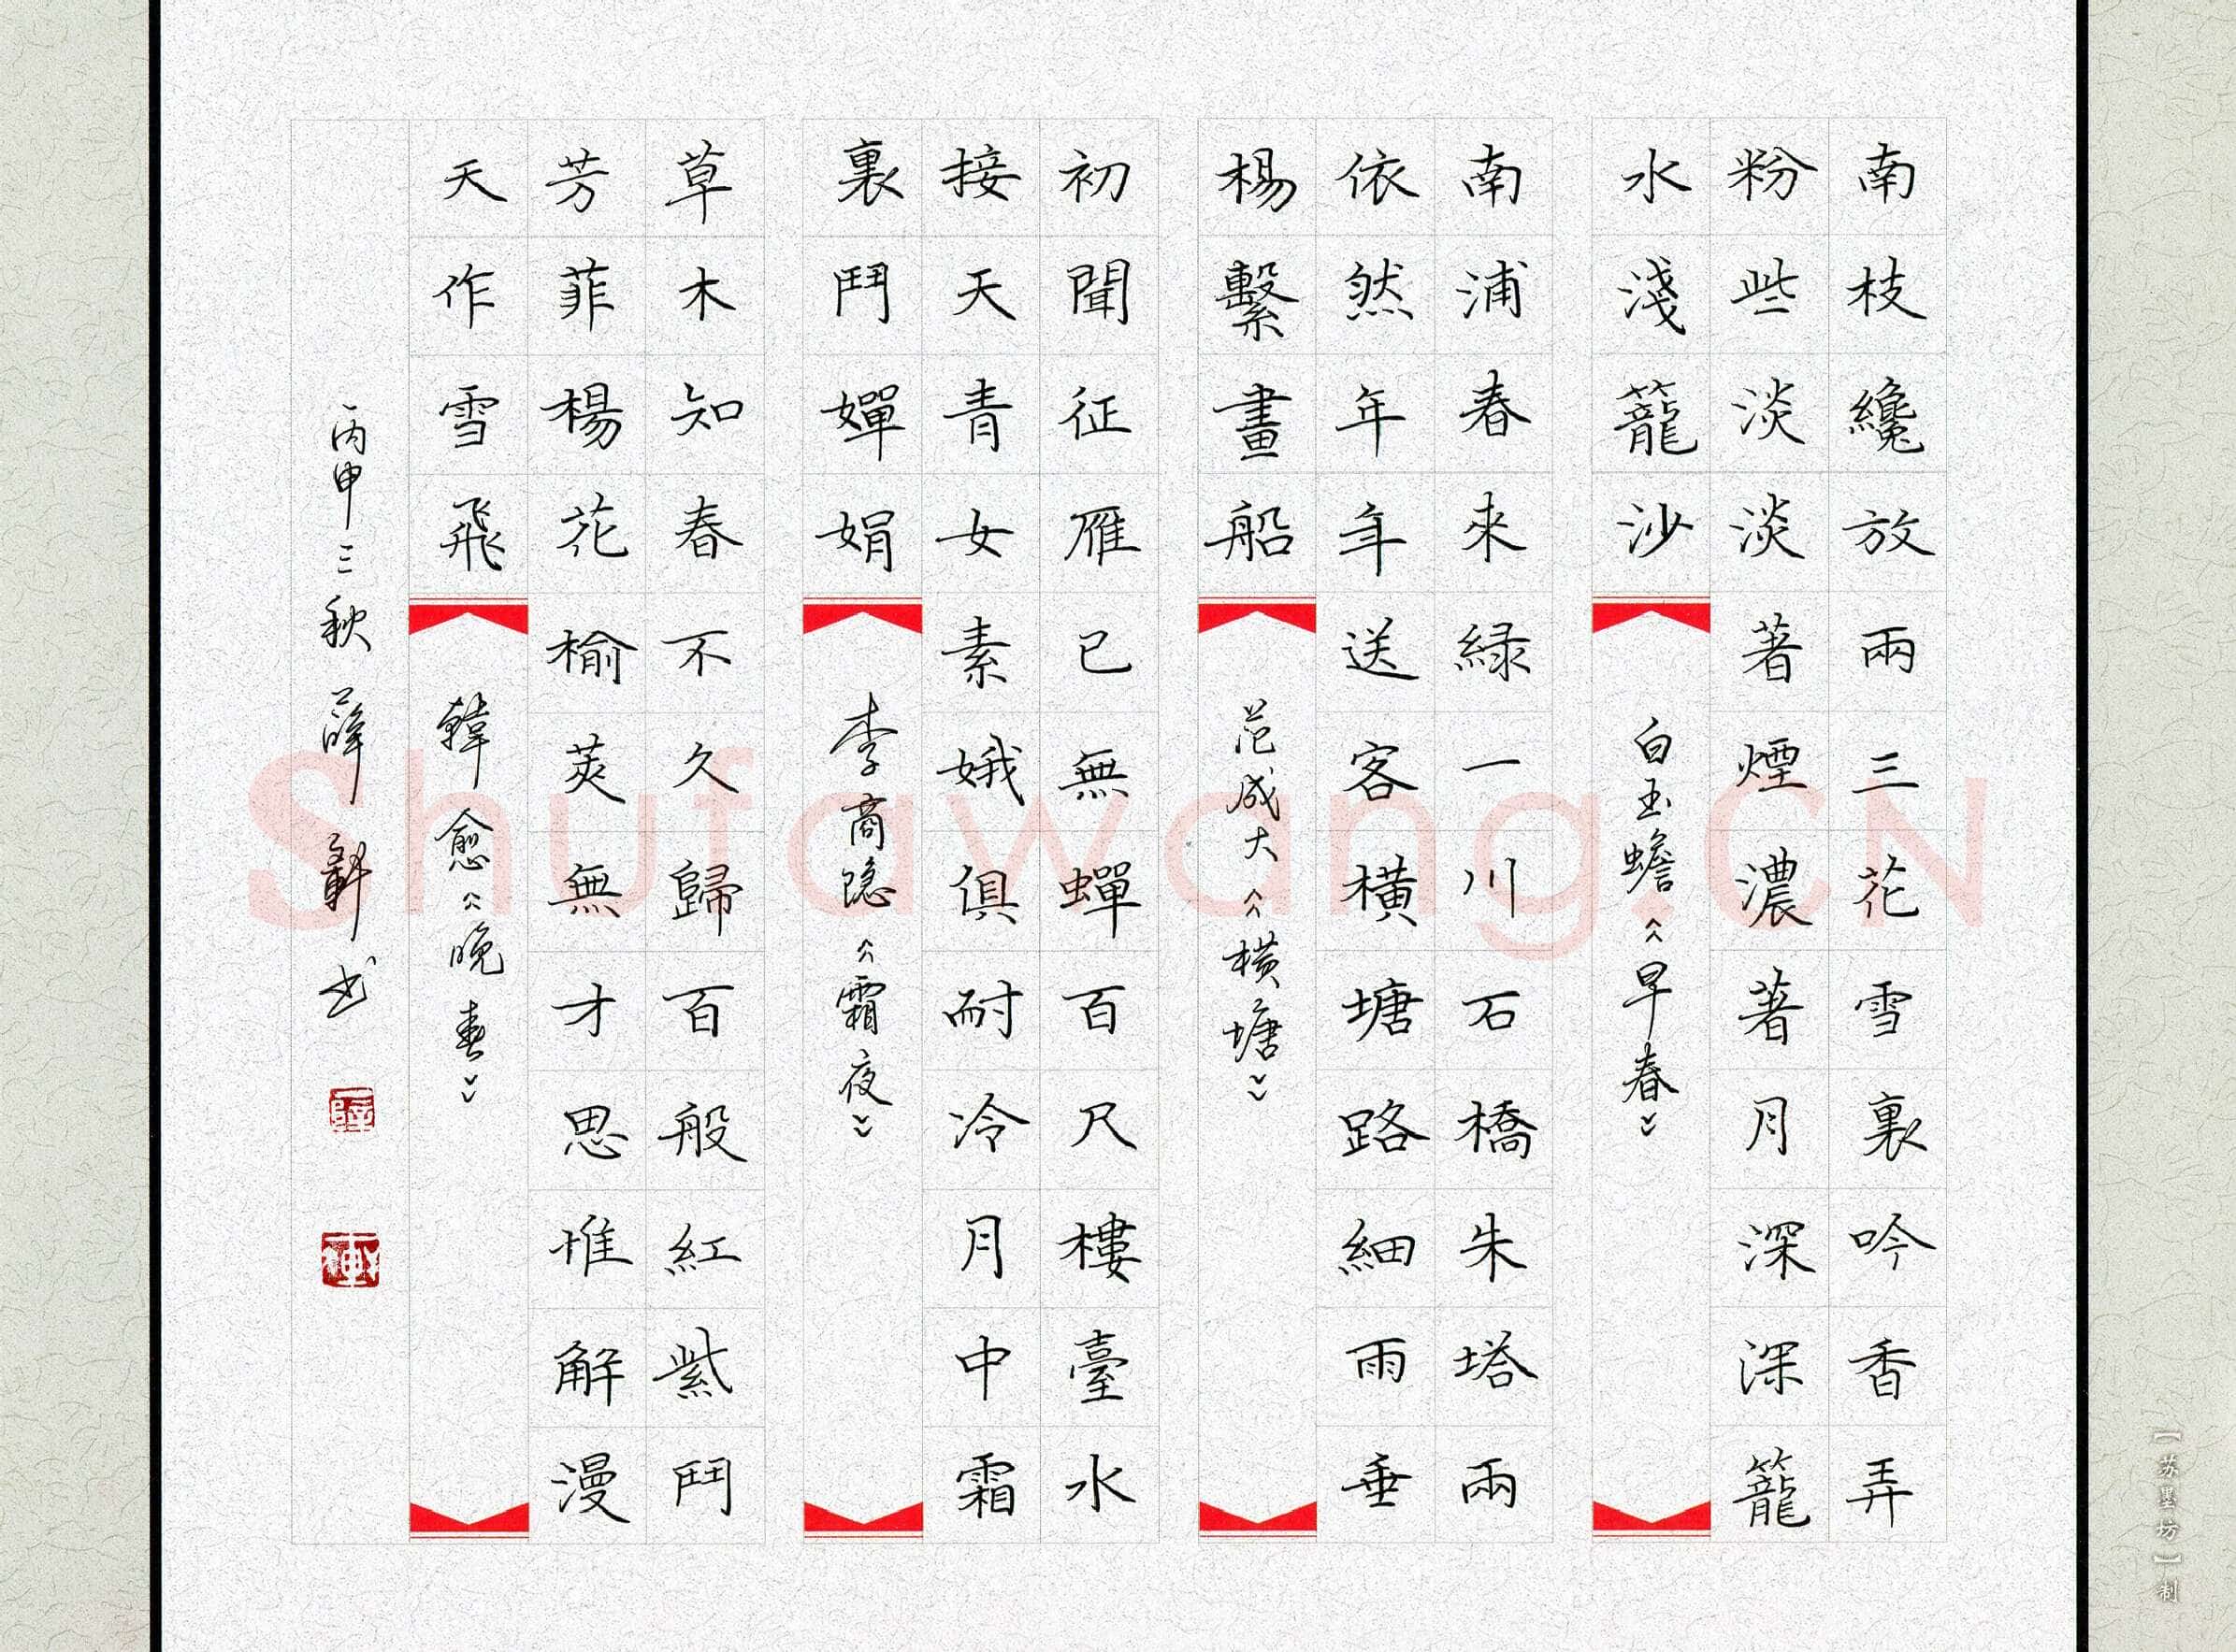 南枝纔放兩三花雪裏吟香弄
粉些淡淡著煙濃著月深深籠
水淺籠沙
白玉蟾《早春》
南浦春來緑一川石橋朱塔兩
依然年年送客橫塘路細雨垂
楊繫畫船
范成大《横塘》
初聞征雁已無蟬百尺樓臺水
接天青女素娥俱耐冷月中霜
裏鬥嬋娟
李商隐《霜夜》
草木知春不久歸百般紅紫鬥
芳菲楊花榆莢無才思惟解漫
天作雪飛
韓愈《晚春》
丙申三秋薛书
Shufawang.CN
【苏墨坊】制